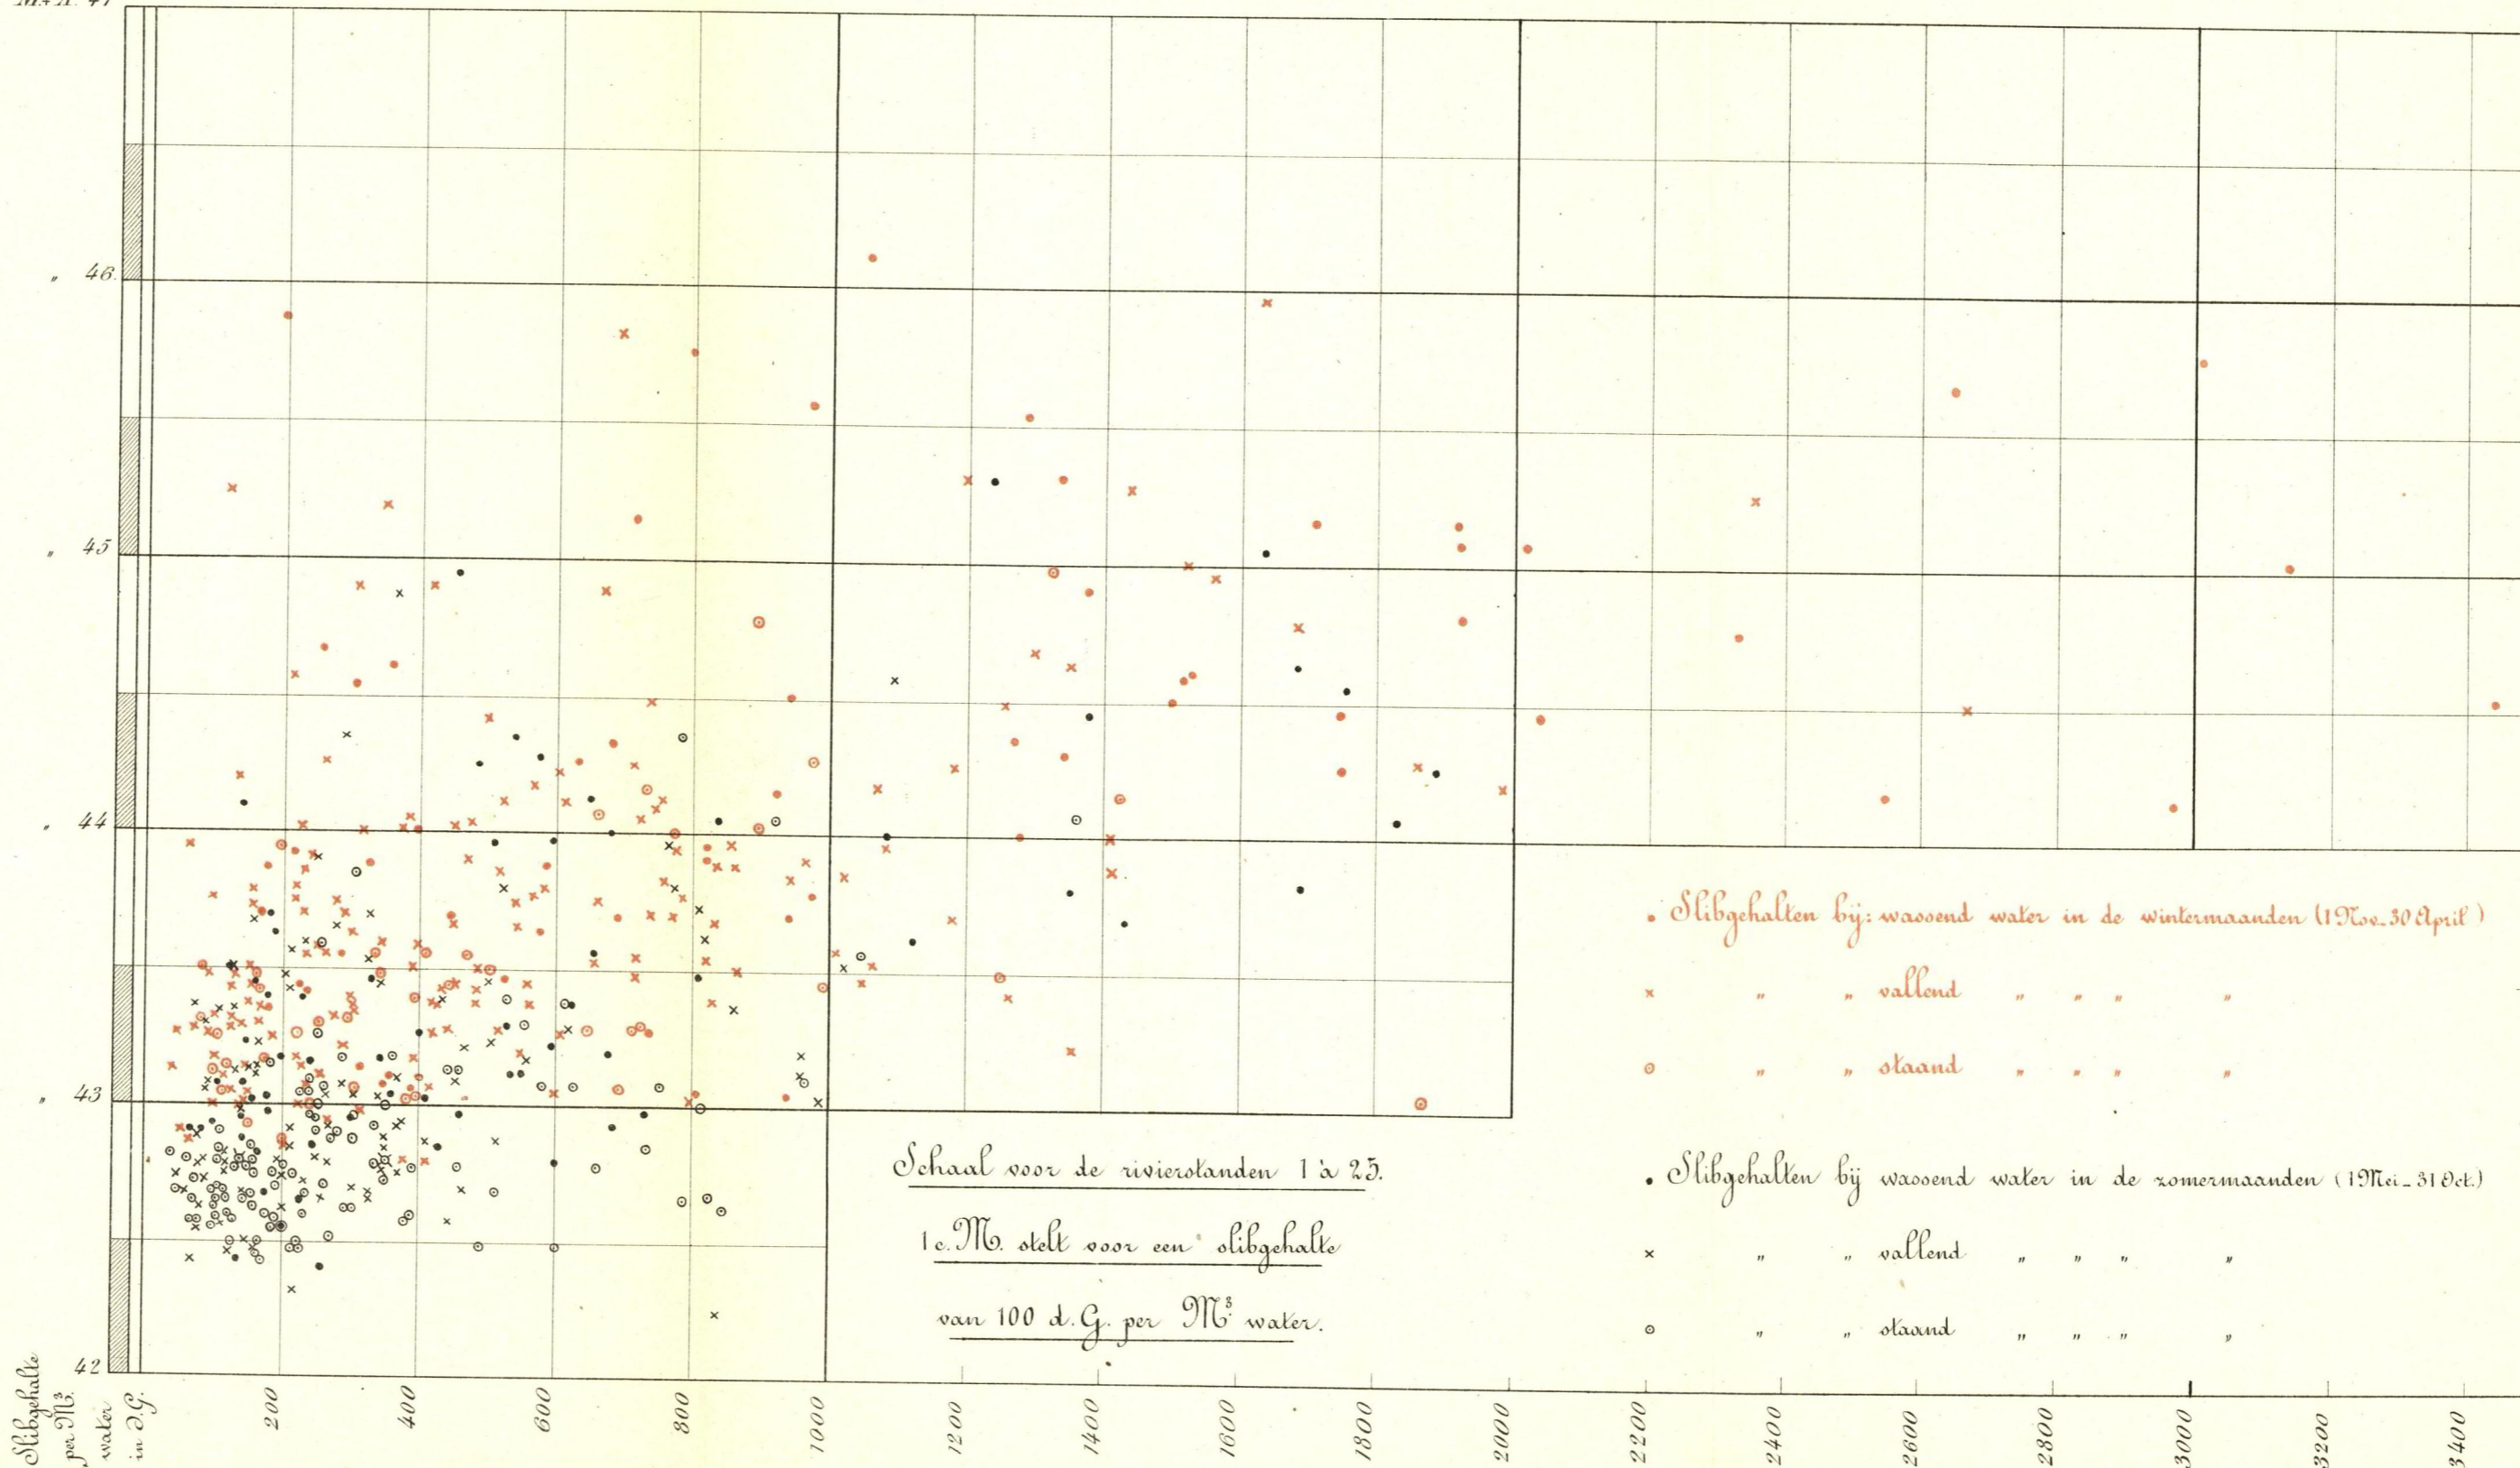 „ 46.
„ 45
„ 44
„ 43
42
Slibgehalte
per M³.
water
in d.G.
200
400
600
800
1000
1200
1400
1600
1800
2000
2200
2400
2600
2800
3000
3200
3400
Schaal voor de rivierstanden 1 à 25.
1 c.M. stelt voor een slibgehalte
van 100 d.G. per M³ water.
Slibgehalten bij: wassend water in de wintermaanden (1 Nov-30 April)
× „ „ vallend „ „ „ „
⊙ „ „ staand „ „ „ „
Slibgehalten bij wassend water in de zomermaanden (1 Mei-31 Oct.)
× „ „ vallend „ „ „ „
⊙ „ „ staand „ „ „ „